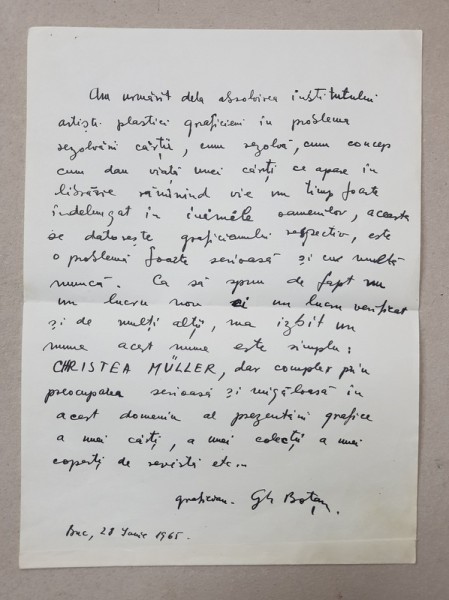 Am urmărit dela absolvirea institutului
artiști plastici graficieni în problema
rezolvării cărții, cum rezolvă, cum concep
cum dau viață unei cărți ce apare în
librărie rămînînd vie un timp foarte
îndelungat în inimile oamenilor, aceasta
se datorește graficianului respectiv, este
o problemă foarte serioasă și cu multă
muncă. Ca să spun de fapt nu
un lucru nou ci un lucru verificat
și de mulți alții, m-a izbit un
nume acest nume este simplu:
CHRISTEA MÜLLER, dar complex prin
preocuparea serioasă și migăloasă în
acest domeniu al prezentării grafice
a unei cărți, a unei colecții a unei
coperți de revistă etc..
grafician. Gh Boțan
Buc, 28 Iunie 1965.